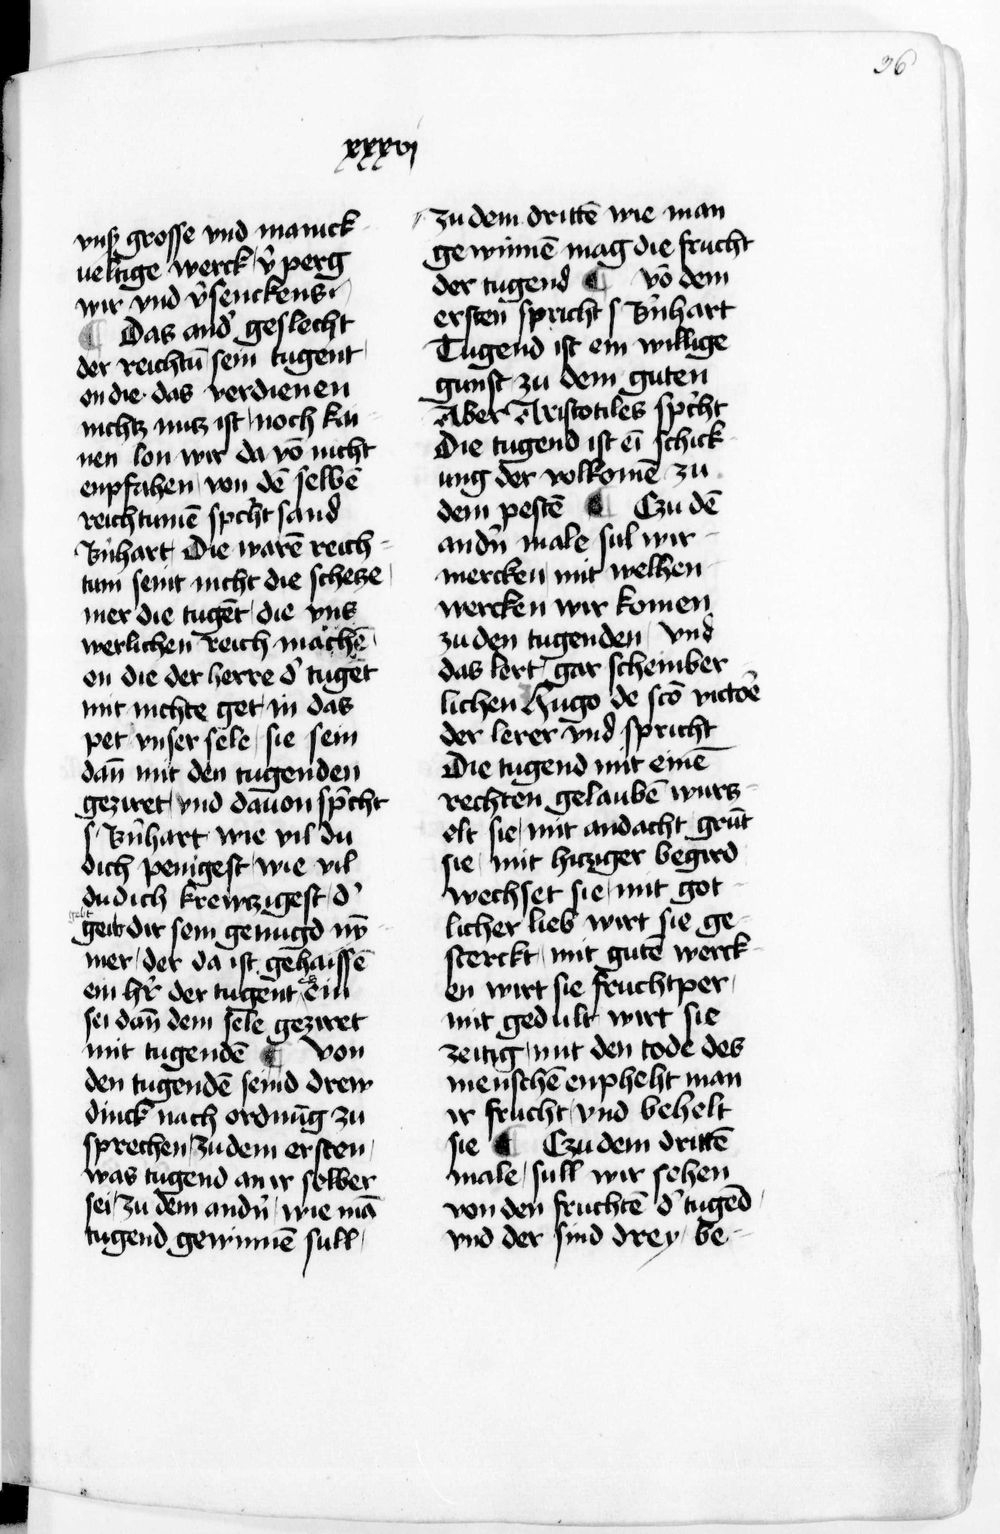 36
xxxvi
vnß grosse vnd manick
ueltige werck / v̉ perg
wir vnd v̉senckens
¶ Das and̉ geslecht
der reichtū sein tugent
on die das verdienen
nichtz nutz ist / noch kai
nen lon wir da vō nicht
enpfahen / von dē selbē
reichtumē spr̉cht sand
Bn̉hart / Die warē reich
tum seint nicht die schetze /
mer die tugēt / die vns
werlichen reich machē
on die der herre d̉ tugēt
mit nichte get in das
pet vnser sele / sie sein
dan̄ mit den tugenden
geziret / vnd dauon spricht
s Bn̉hart wie vil du
dich penigest / wie vil
du dich krewtzigest / d̉
gebt
geit dir sein genugd ny̅
mer / der da ist gehaissē
ein hr̉ der tugent ein
sei dan̄ dem sele geziret
mit tugendē ¶ von
den tugendē seind drew
dinck nach ordnūg zu
sprechen / zu dem ersten /
was tugend an ir selber
sei / zu dem andn̉ / wie mā
tugend gewinnē sull /
zu dem drittē wie man
gewinnē mag die frucht
der tugend ¶ vō dem
ersten spricht s Bn̉hart
Tugend ist ein willige
gunst zu dem guten
Aber Aristotiles spr̉cht
Die tugend ist eī schick
ung der volkomē zu
dem pestē ¶ Czu dē
andn̉ male sul wir
mercken / mit welhen
wercken wir komen
zu den tugenden / vnd
das lert / gar scheinber
lichen Hugo de scō victōe
der lerer vnd spricht
Die tugend mit einē
rechten gelaubē wurtz
elt sie / mit andacht grūt
sie / mit hitziger begird
wechset sie / mit got
licher lieb wirt sie ge
sterckt / mit gutē werck
en wirt sie fruchtper /
mit gedult wirt sie
zeitig / mit den tode des
menschē enpheht man
ir frucht / vnd behelt
sie ¶ Czu dem drittē
male / sull wir sehen
von den fruchtē d̉ tugēd /
vnd der sind drey / be